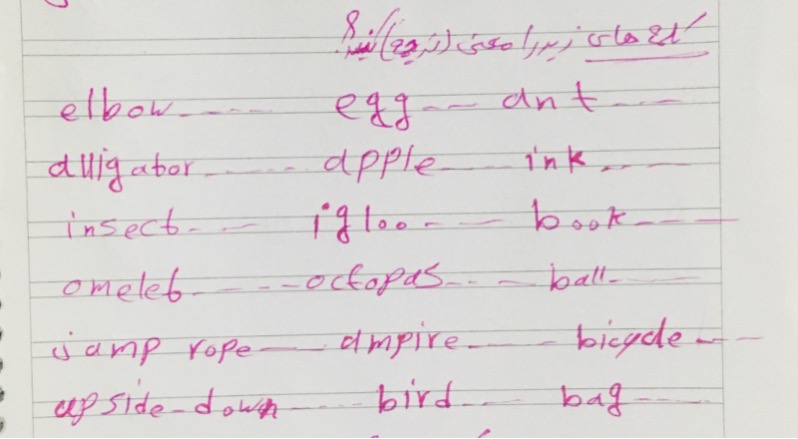 کلمه های زیر را معنی (ترجمه) کنید.
elbow egg ant
alligator apple ink
insect igloo book
omelet octopas ball
jamp rope ampire bicycle
upside-down bird bag